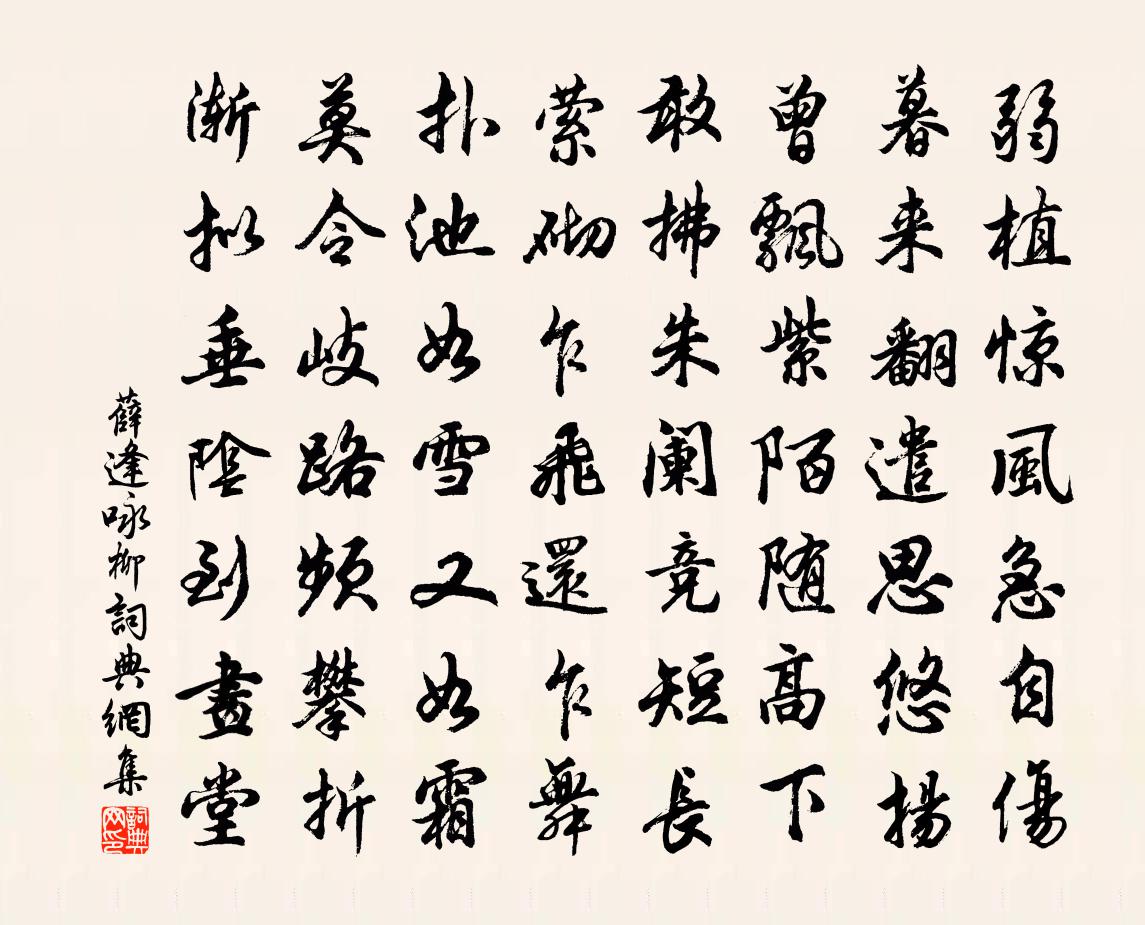 弱植惊風急自傷
暮来翻遣思悠揚
曾飄紫陌随高下
敢拂朱阑竞短長
萦砌乍飛還乍舞
扑池如雪又如霜
莫令歧路頻攀折
漸拟垂陰到畫堂
薛逢咏柳詞典網集
詞典
网印